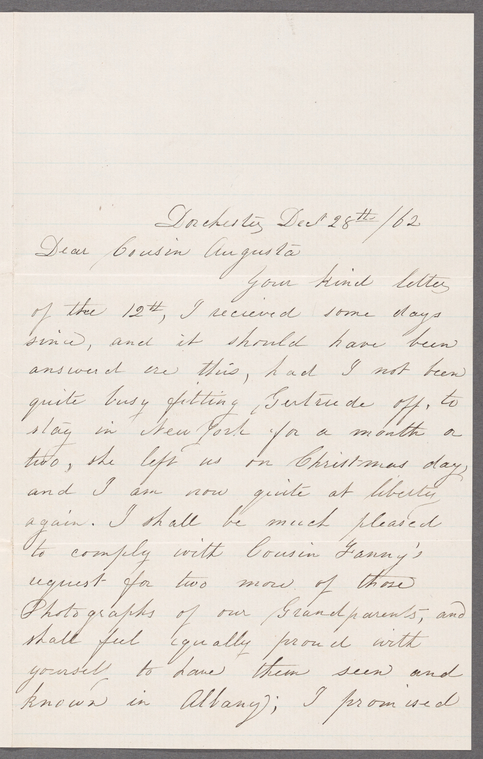 Dorchester Dec 28th /62
Dear Cousin Augusta
Your kind letter
of the 12th, I recieved some days
since, and it should have been
answered ere this, had I not been
quite busy fitting Gertrude off, to
stay in New York for a month or
two, she left us on Christmas day,
and I am now quite at liberty
again. I shall be much pleased
to comply with Cousin Fanny's
request for two more of those
Photographs of our Grandparents, and
shall feel equally proud with
yourself to have them seen and
known in Albany; I promised